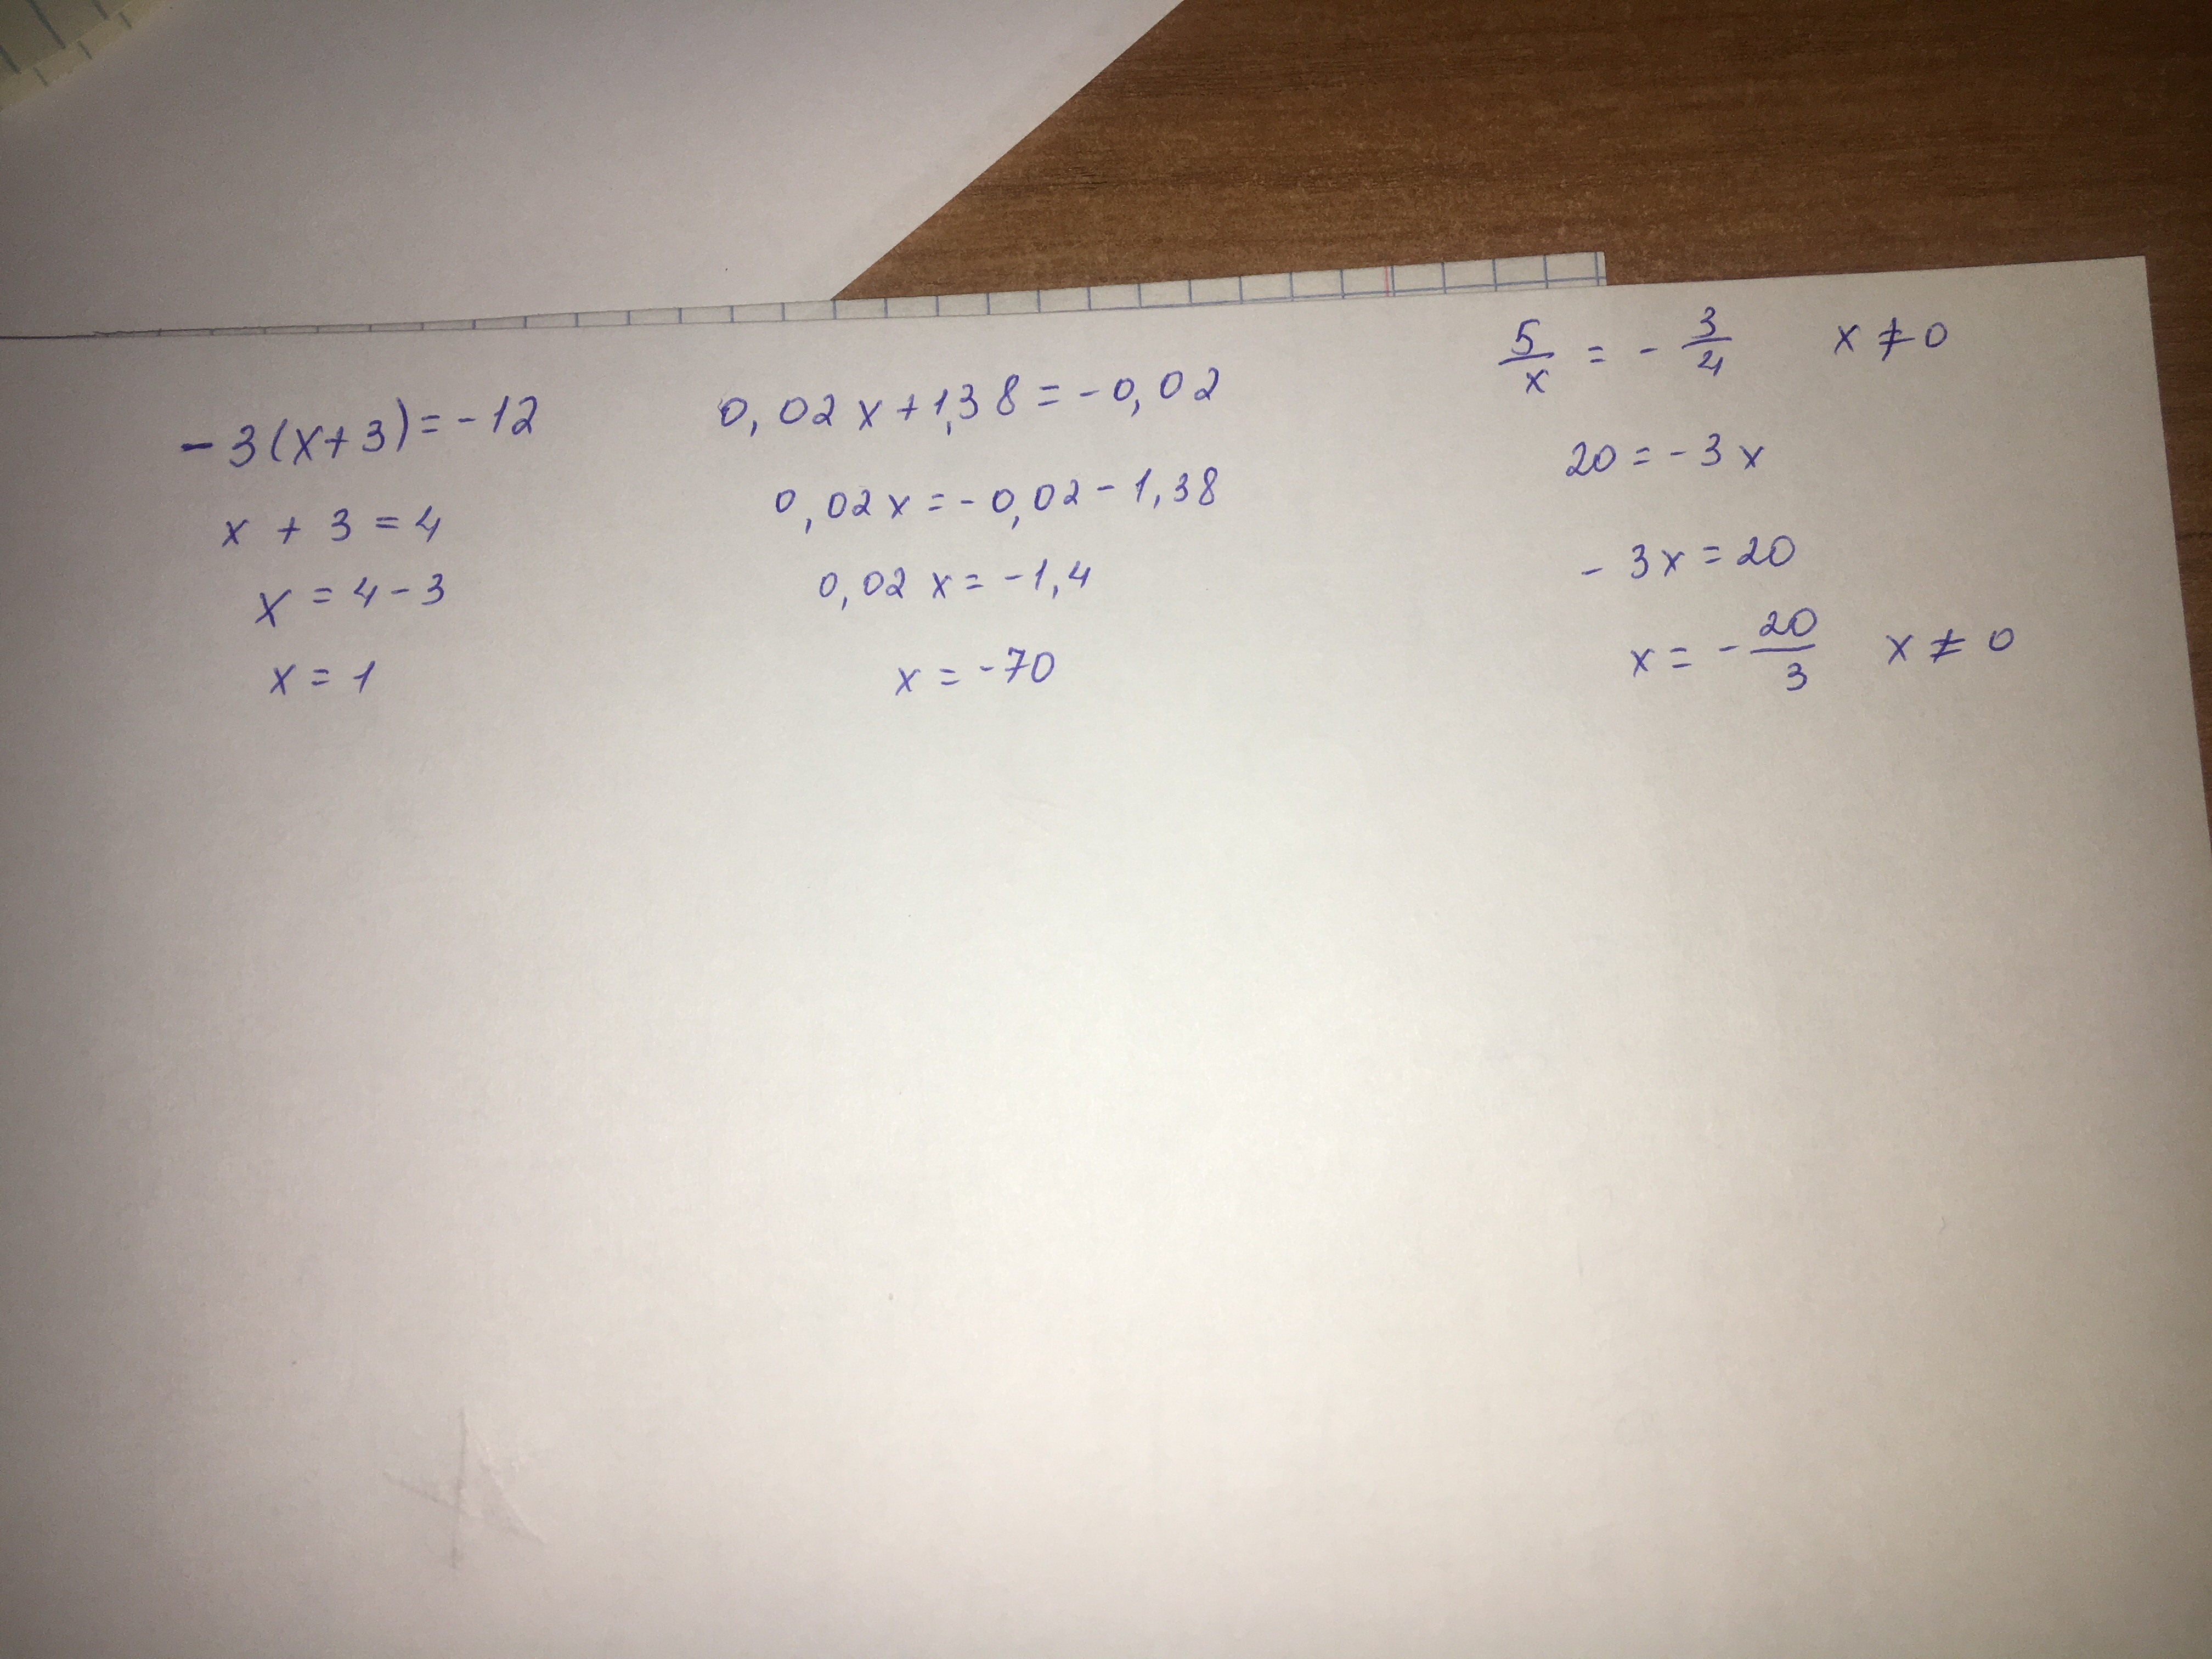 -3(x+3)=-12
x + 3 = 4
x = 4 - 3
x = 1
0,02x+1,38=-0,02
0,02x=-0,02-1,38
0,02x=-1,4
x = -70
5/x = -3/4 x ≠ 0
20=-3x
-3x=20
x = -20/3 x ≠ 0